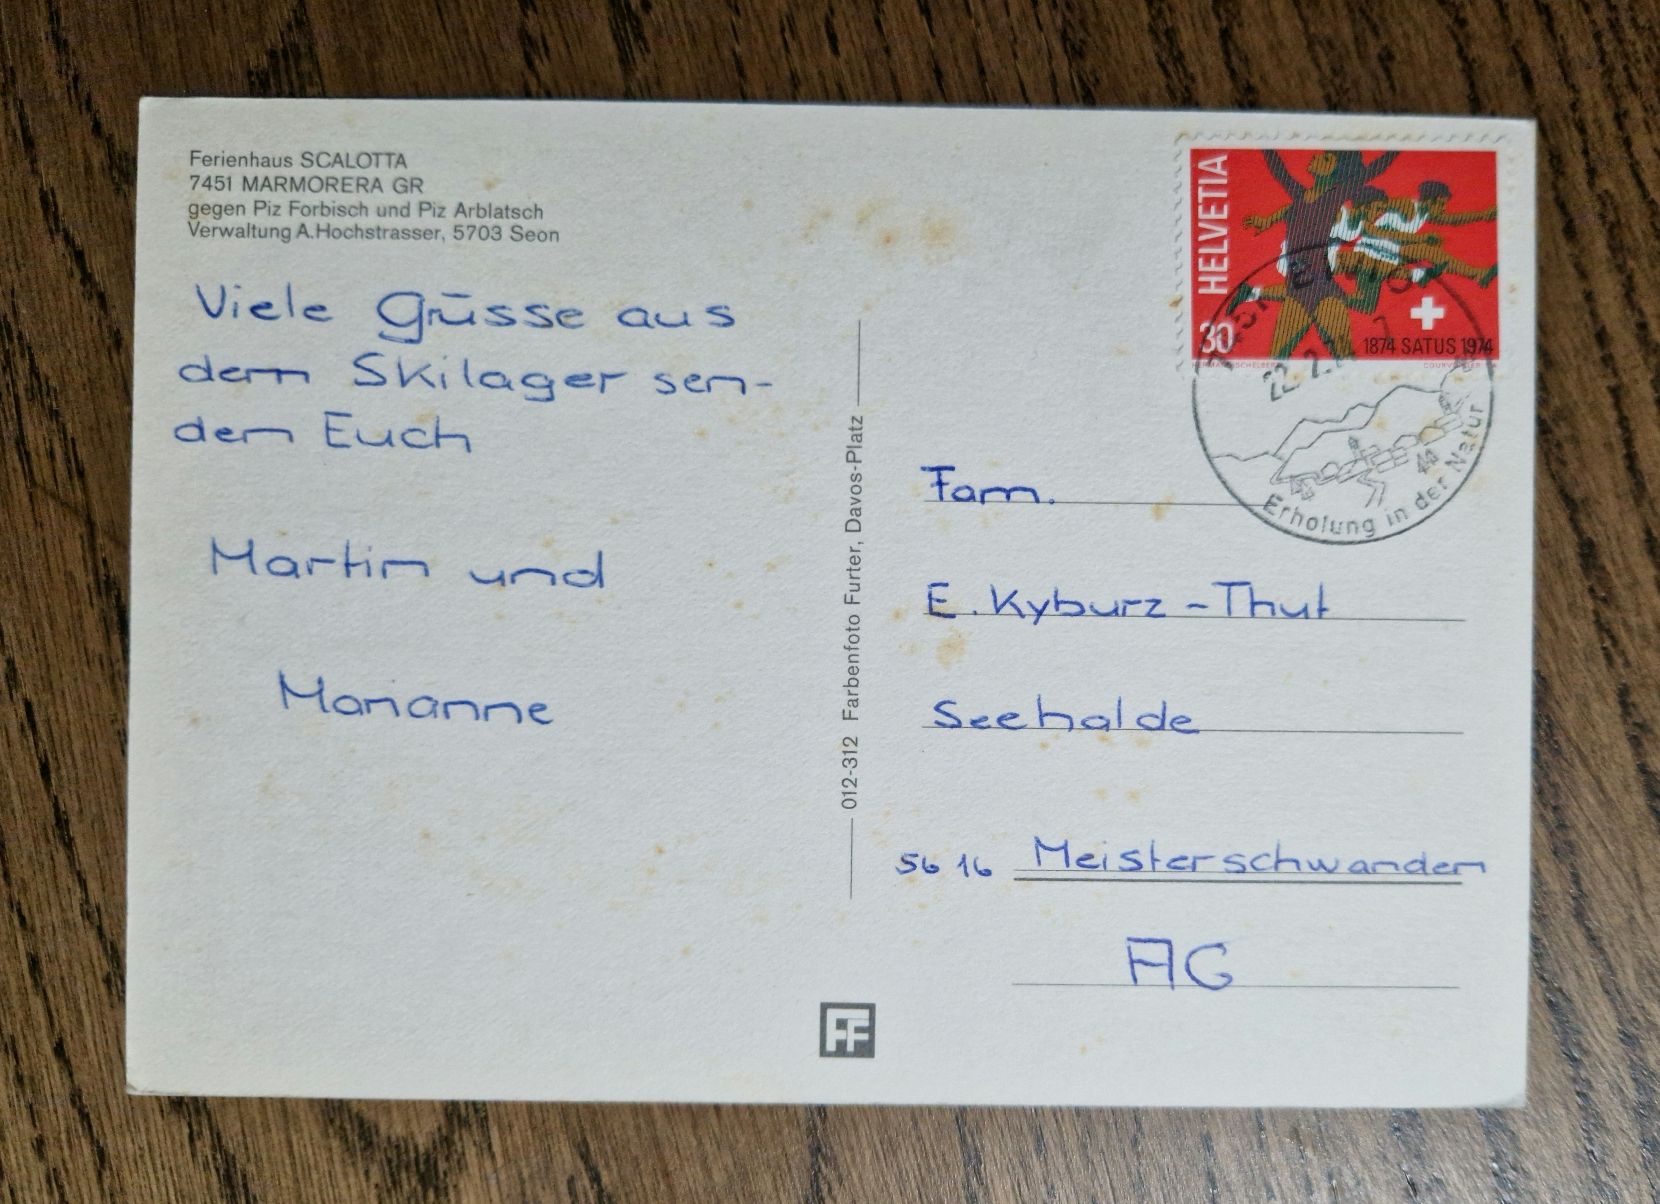 Ferienhaus SCALOTTA
7451 MARMORERA GR
gegen Piz Forbisch und Piz Arblatsch
Verwaltung A. Hochstrasser, 5703 Seon
Viele Grüsse aus
dem Skilager sen-
den Euch
Martin und
Marianne
012-312 Farbenfoto Furter, Davos-Platz
FF
HELVETIA
30
1874 SATUS 1974
22.2.
Erholung in der Natur
Fam.
E. Kyburz-Thut
Seehalde
5616 Meisterschwanden
AG